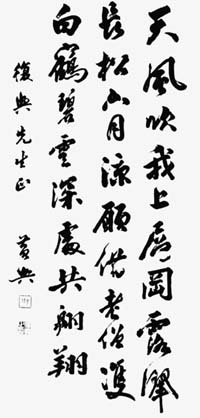 天風吹我上層岡露灑
長松六月涼願借老僧雙
白鶴碧雲深處共翱翔
復興先生正
黃興